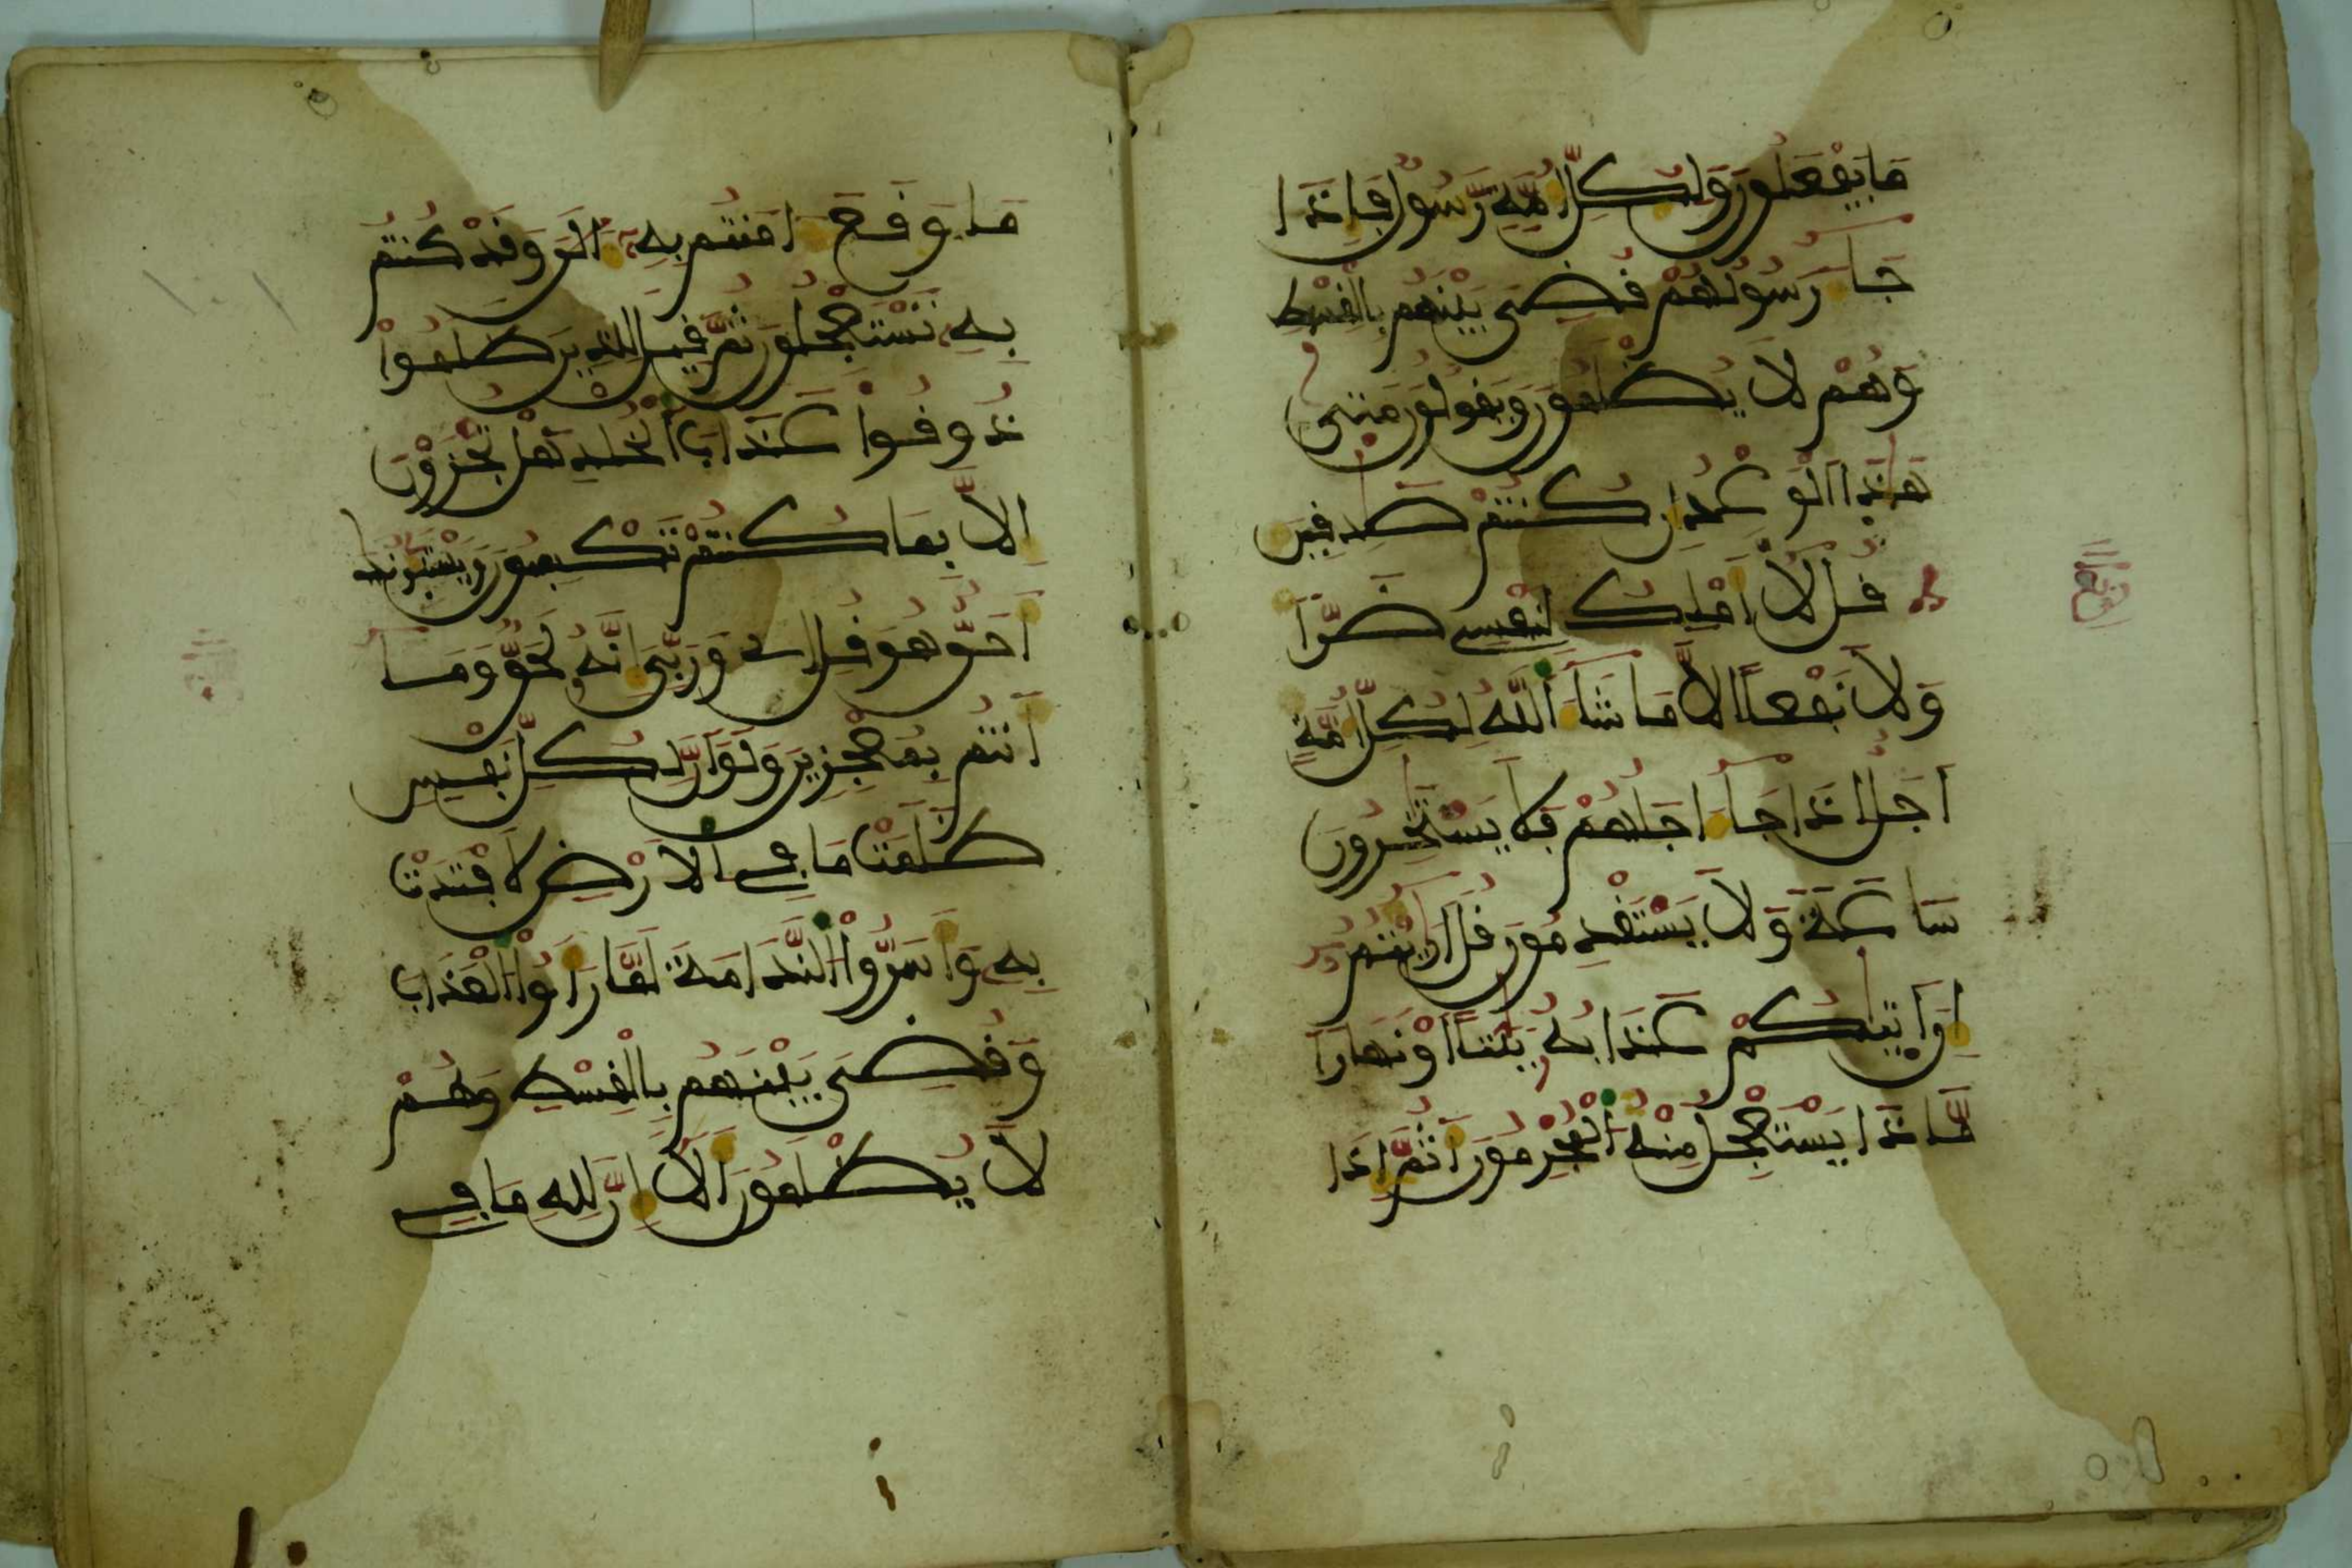 مَا يَفْعَلُونَ وَلِكُلِّ أُمَّةٍ رَّسُولٌ فَإِذَا
جَا رَسُولُهُمْ قُضِيَ بَيْنَهُم بِالْقِسْطِ
وَهُمْ لَا يُظْلَمُونَ وَيَقُولُونَ مَتَىٰ
هَٰذَا الْوَعْدُ إِن كُنتُمْ صَٰدِقِينَ
قُل لَّا أَمْلِكُ لِنَفْسِي ضَرًّا
وَلَا نَفْعًا إِلَّا مَا شَاءَ اللَّهُ لِكُلِّ أُمَّةٍ
أَجَلٌ إِذَا جَاءَ اجَلُهُمْ فَلَا يَسْتَٰخِرُونَ
سَاعَةً وَلَا يَسْتَقْدِمُونَ قُلَ ارَٰيْتُمُ
إِنَ اتَىٰكُمْ عَذَابُهُ بَيَٰتًا اوْ نَهَارًا
مَّاذَا يَسْتَعْجِلُ مِنْهُ الْمُجْرِمُونَ أَثُمَّ إِذَا
مَا وَقَعَ ءَامَنتُم بِهِ ءَالَٰنَ وَقَدْ كُنتُم
بِهِ تَسْتَعْجِلُونَ ثُمَّ قِيلَ لِلَّذِينَ ظَلَمُوا
ذُوقُوا عَذَابَ الْخُلْدِ هَلْ تُجْزَوْنَ
إِلَّا بِمَا كُنتُمْ تَكْسِبُونَ وَيَسْتَنبِـُٔونَكَ
أَحَقٌّ هُوَ قُلِ اي وَرَبِّيَ إِنَّهُ لَحَقٌّ وَمَا
أَنتُم بِمُعْجِزِينَ وَلَوَ انَّ لِكُلِّ نَفْسٍ
ظَلَمَتْ مَا فِي الَارْضِ لَافْتَدَتْ
بِهِ وَأَسَرُّوا النَّدَامَةَ لَمَّا رَأَوُا الْعَذَابَ
وَقُضِيَ بَيْنَهُم بِالْقِسْطِ وَهُمْ
لَا يُظْلَمُونَ أَلَا إِنَّ لِلهِ مَا فِي